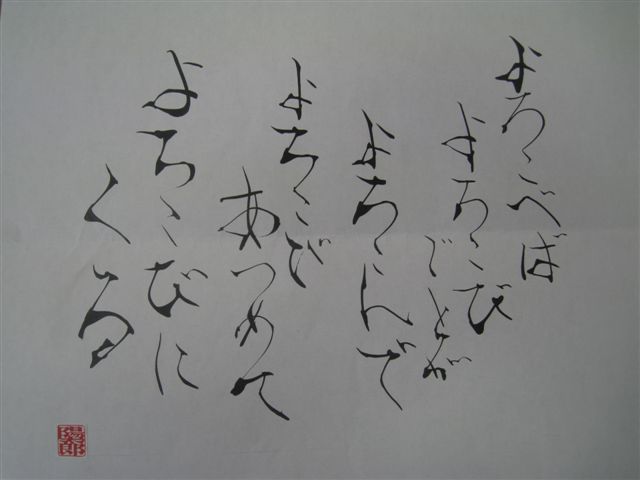 よろこべば
よろこび
ごとが
よろこんで
よろこび
あつめて
よろこびに
くる